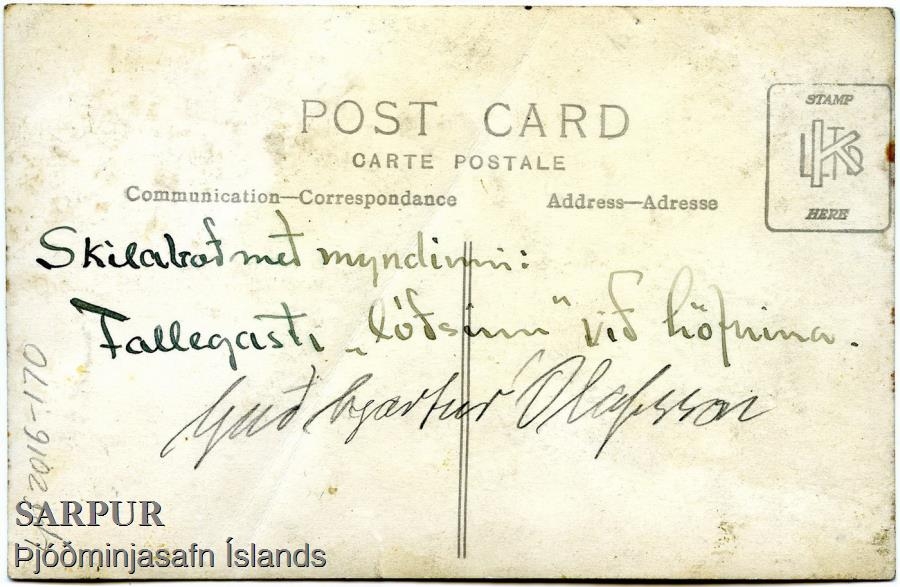 POST CARD
CARTE POSTALE
Communication—Correspondance
Address—Adresse
STAMP
HERE
Skilaboð með myndinni:
Fallegasti „lóðsinn“ við höfnina.
Guðbjartur Ólafsson
2016-170
SARPUR
Þjóðminjasafn Íslands